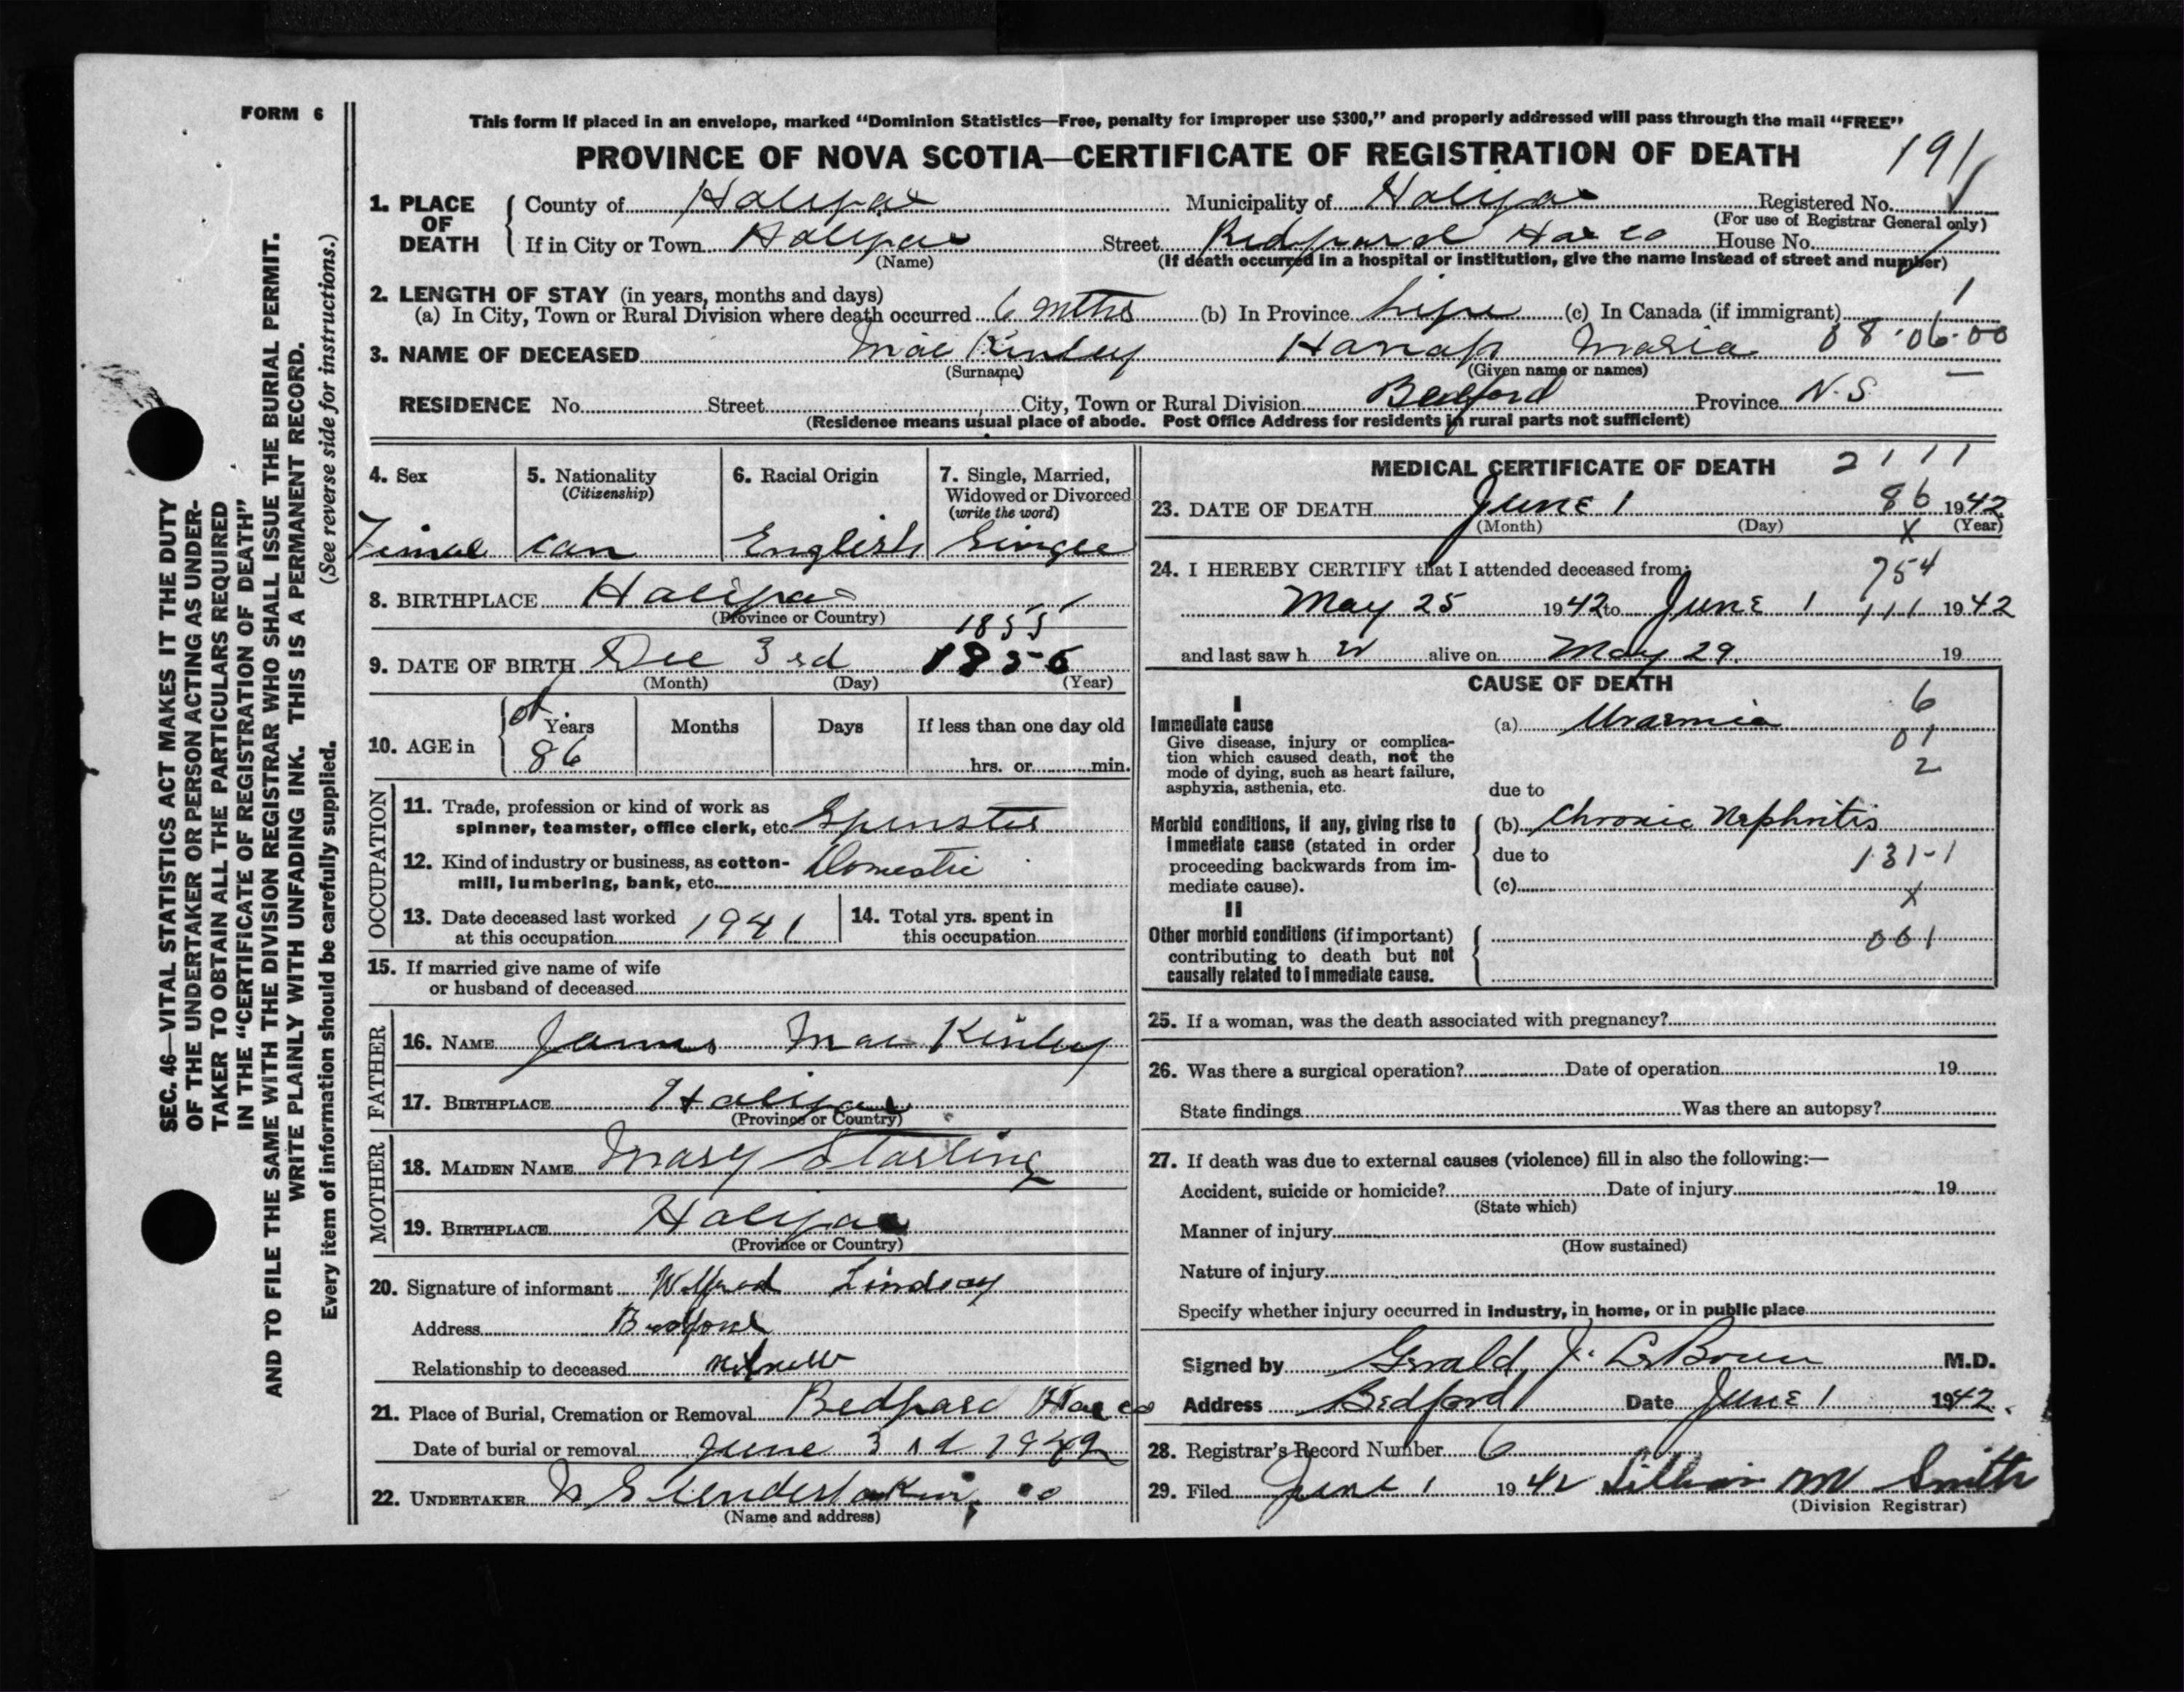 FORM 6
This form if placed in an envelope, marked “Dominion Statistics—Free, penalty for improper use $300,” and properly addressed will pass through the mail “FREE”
PROVINCE OF NOVA SCOTIA—CERTIFICATE OF REGISTRATION OF DEATH 191
1. PLACE OF DEATH County of Halifax Municipality of Halifax Registered No.
(For use of Registrar General only)
If in City or Town Halifax Street Bedford Hax co House No.
(Name) (If death occurred in a hospital or institution, give the name instead of street and number)
2. LENGTH OF STAY (in years, months and days)
(a) In City, Town or Rural Division where death occurred 6 mths (b) In Province life (c) In Canada (if immigrant)
3. NAME OF DECEASED Mac Kinley Hanah Maria 08·06·00
(Surname) (Given name or names)
RESIDENCE No. Street City, Town or Rural Division Bedford Province N.S
(Residence means usual place of abode. Post Office Address for residents in rural parts not sufficient)
4. Sex 5. Nationality (Citizenship) 6. Racial Origin 7. Single, Married, Widowed or Divorced (write the word)
Can English Single
8. BIRTHPLACE Halifax
(Province or Country)
1855
9. DATE OF BIRTH Dec 3rd 1856
(Month) (Day) (Year)
10. AGE in Years Months Days If less than one day old
86 hrs. or min.
OCCUPATION
11. Trade, profession or kind of work as
spinner, teamster, office clerk, etc. Spinster
12. Kind of industry or business, as cotton-
mill, lumbering, bank, etc. Domestic
13. Date deceased last worked
at this occupation 1941
14. Total yrs. spent in
this occupation
15. If married give name of wife
or husband of deceased
FATHER
16. NAME James Mac Kinley
17. BIRTHPLACE Halifax
(Province or Country)
MOTHER
18. MAIDEN NAME Mary Starling
19. BIRTHPLACE Halifax
(Province or Country)
20. Signature of informant Wilfred Lindsay
Address Bedford
Relationship to deceased
21. Place of Burial, Cremation or Removal Bedford Hax co
Date of burial or removal June 3rd 1942
22. UNDERTAKER N S Undertaking Co
(Name and address)
MEDICAL CERTIFICATE OF DEATH 2111
23. DATE OF DEATH June 1 86 1942
(Month) (Day) X (Year)
24. I HEREBY CERTIFY that I attended deceased from: 754
May 25 1942 to June 1 111 1942
and last saw h alive on May 29. 19
CAUSE OF DEATH
I
Immediate cause (a) Uraemia 6
Give disease, injury or complica-
tion which caused death, not the 01
mode of dying, such as heart failure, 2
asphyxia, asthenia, etc. due to
Morbid conditions, if any, giving rise to (b) Chronic Nephritis
immediate cause (stated in order due to 131-1
proceeding backwards from im-
mediate cause). (c)
X
II
Other morbid conditions (if important) 001
contributing to death but not
causally related to immediate cause.
25. If a woman, was the death associated with pregnancy?
26. Was there a surgical operation? Date of operation 19
State findings Was there an autopsy?
27. If death was due to external causes (violence) fill in also the following:—
Accident, suicide or homicide? Date of injury 19
(State which)
Manner of injury
(How sustained)
Nature of injury
Specify whether injury occurred in industry, in home, or in public place
Signed by Gerald J. M.D.
Address Bedford Date June 1 1942.
28. Registrar's Record Number 6
29. Filed June 1 1942 Lillian M Smith
(Division Registrar)
SEC. 46—VITAL STATISTICS ACT MAKES IT THE DUTY
OF THE UNDERTAKER OR PERSON ACTING AS UNDER-
TAKER TO OBTAIN ALL THE PARTICULARS REQUIRED
IN THE “CERTIFICATE OF REGISTRATION OF DEATH”
AND TO FILE THE SAME WITH THE DIVISION REGISTRAR WHO SHALL ISSUE THE BURIAL PERMIT.
WRITE PLAINLY WITH UNFADING INK. THIS IS A PERMANENT RECORD.
Every item of information should be carefully supplied. (See reverse side for instructions.)